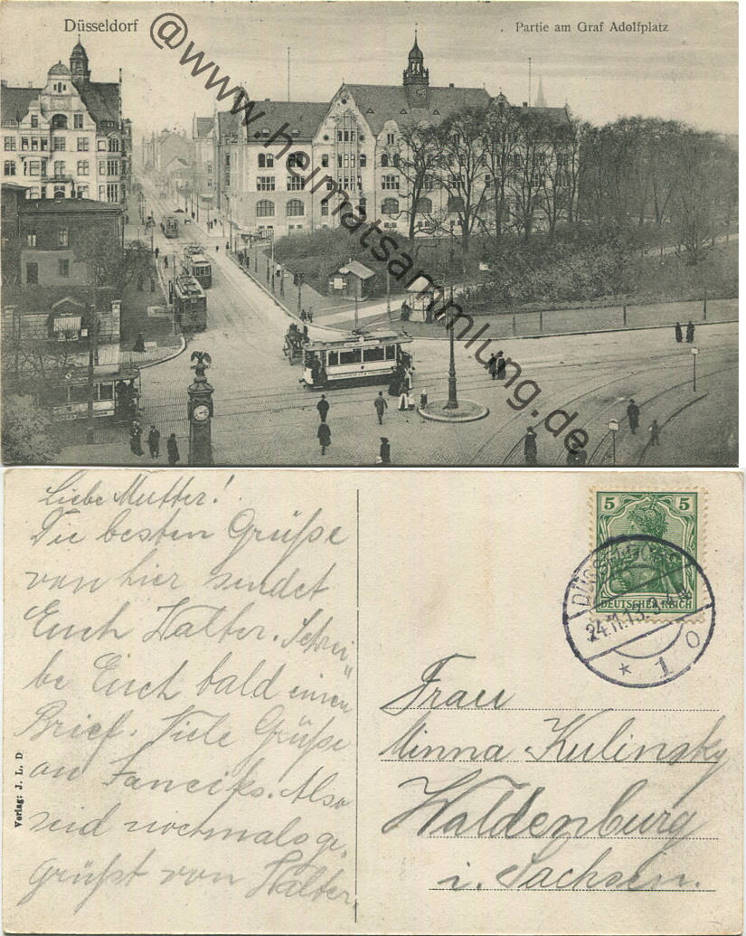 Düsseldorf
Partie am Graf Adolfplatz
@www.heimatsammlung.de
Liebe Mutter!
Die besten Grüße
von hier sendet
Euch Walter. Schrei„
be Euch bald einen
Brief. Viele Grüße
an. Also
seid nochmals ge„
grüßt von Walter.
Verlag: J. L. D
5 5
DEUTSCHES REICH
24.11.13.
* 1 0
Frau
Minna Kulinsky
Waldenburg
i. Sachsen.